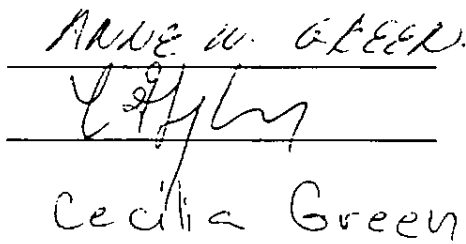 ANNE W. GREEN.
Cecilia Green